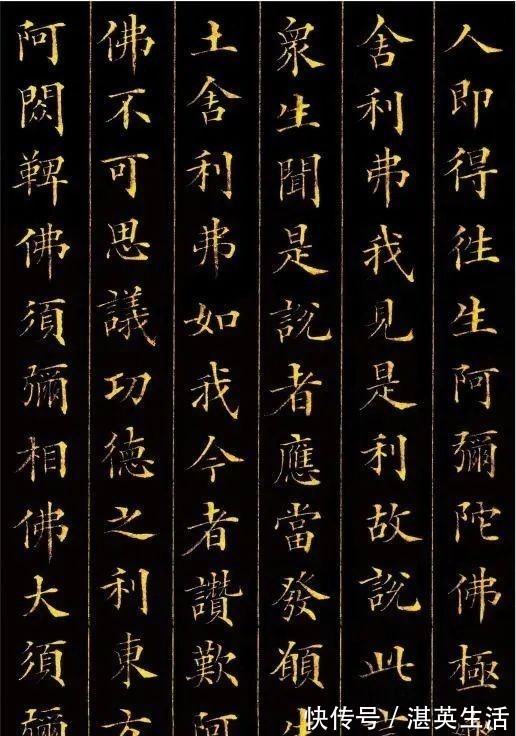 人即得徃生阿彌陀佛極
舍利弗我見是利故說此
衆生聞是說者應當發願生
土舍利弗如我今者讚歎阿
佛不可思議功德之利東方
阿閦鞞佛須彌相佛大須彌
快传号／湛英生活